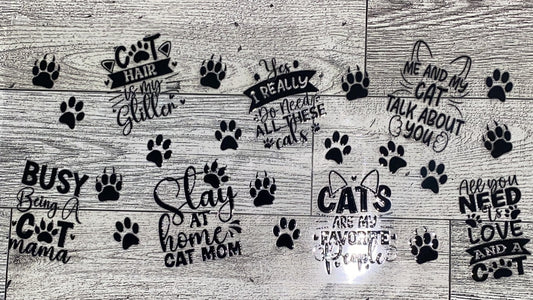 CAT
HAIR
is my
Glitter
Yes
I REALLY
Do Need
ALL THESE
cats
ME AND MY
CAT
TALK ABOUT
YOU
BUSY
Being A
CAT
mama
Stay
AT
home
CAT MOM
CATS
ARE MY
FAVORITE
People
All you
NEED
Is
LOVE
AND A
CAT